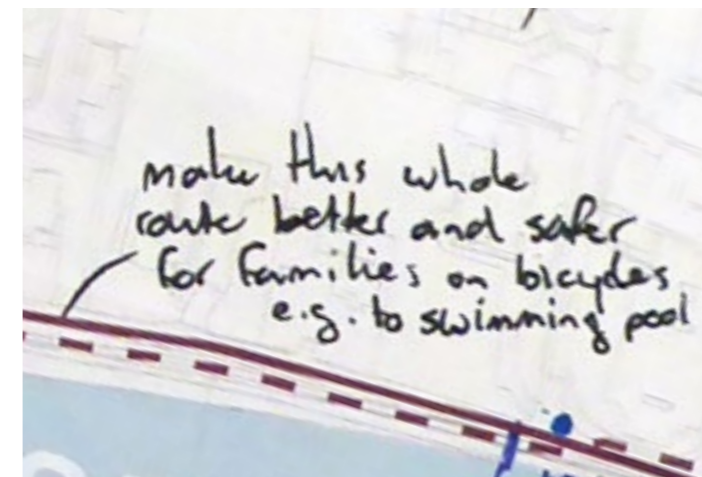 make this whole
route better and safer
for families on bicycles
e.g. to swimming pool